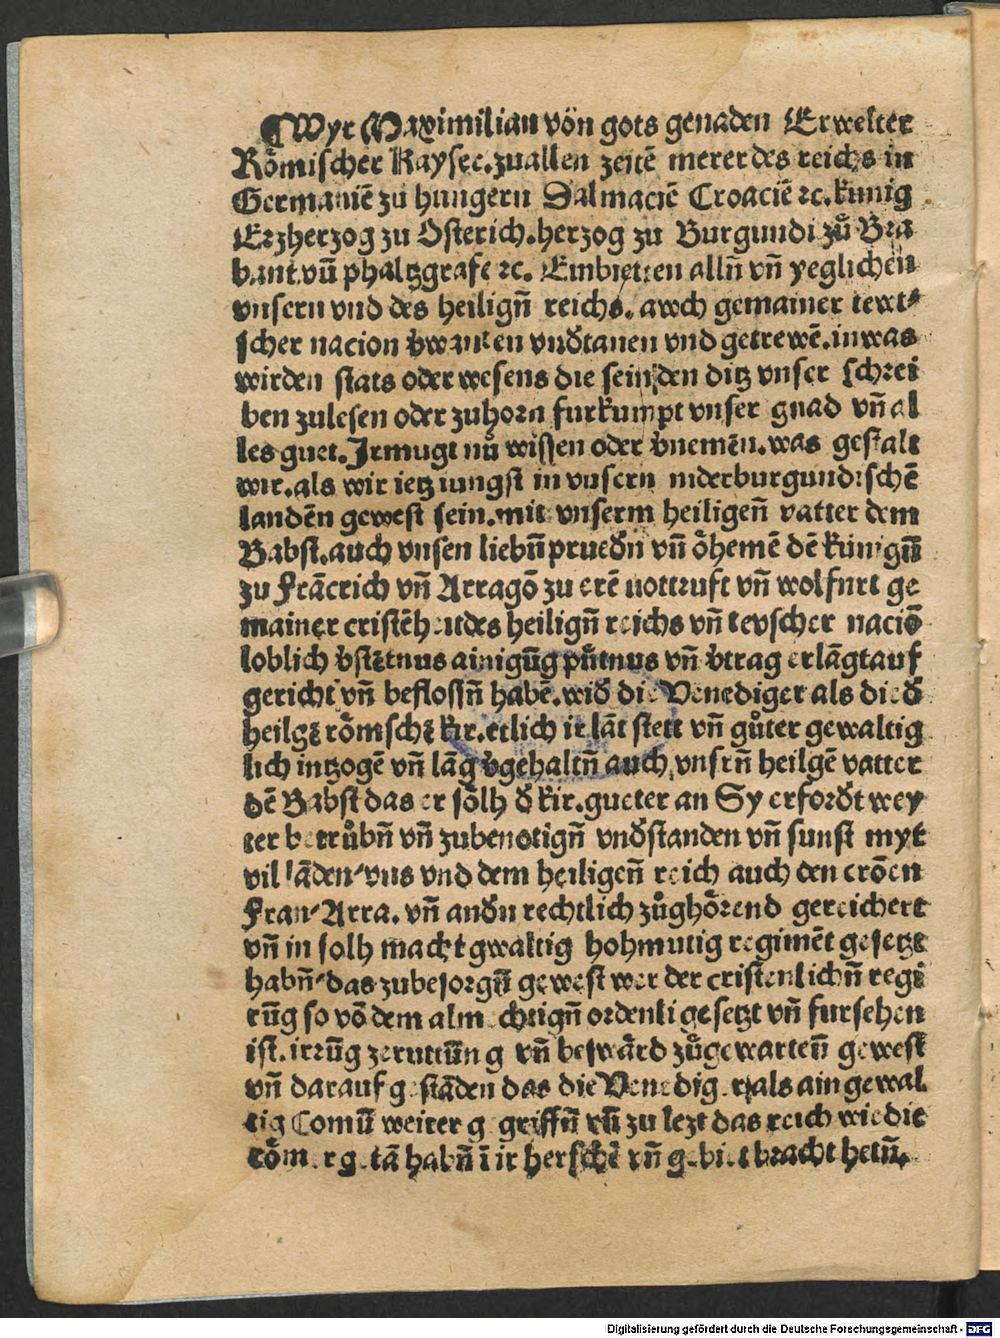 ¶ Wyr Maximilian vön gots genaden Erwelter
Römischer Kayser. zuallen zeitē merer des reichs in
Germaniē zu hungern Dalmaciē Croaciē ꝛc. kunig
Erzherzog zu Osterich. herzog zu Burgundi zů Bra
bant. vn̄ phaltzgrafe ꝛc. Embietten alln̄ vn̄ yeglichen
vnsern vnd des heilign̄ reichs. awch gemainer tewt⸗
scher nacion v̄wanten vnd̄tanen vnd getrewē. in was
wirden stats oder wesens die sein, den ditz vnser schrei
ben zulesen oder zuhorn furkumpt vnser gnad vn̄ al
les guet. Ir mugt nů wissen oder v̄nemēn. was gestalt
wir. als wir ietz iungst in vnsern niderburgundischē
landēn gewest sein. mit vnserm heiligen̄ vatter dem
Babst. auch vnsen liebn̄ prued̄n vn̄ öhemē dē künign̄
zu Frācrich vn̄ Arragō zu erē nottruft vn̄ wolfurt ge
mainer cristēheit des heilign̄ reichs vn̄ tevscher naciō
loblich v̄stētnus ainigūg půtnus vn̄ v̄trag erlāgt auf
gericht vn̄ beslossn̄ habē. wid̄ die Venediger als die d̄
heilgē römschē kir. etlich ir lāt stett vn̄ gůter gewaltig
lich intzogē vn̄ lāg v̄gehaltn̄ auch vnsrn̄ heilgē vatter
dē Babst das er sölh d̄ kir. gueter an Sy erford̄t wey
ter betrůbn̄ vn̄ zubenotign̄ vnd̄standen vn̄ sunst myt
vil lāden/ vns vnd dem heiligen̄ reich auch den crōen
Fran/ Arra. vn̄ and̄n rechtlich zůghörend gereichert
vn̄ in solh macht gwaltig hohmutig regimēt gesetzt
habn̄/ das zubesorgn̄ gewest wer der cristenlichn̄ regi
rūg so vō dem almechtign̄ ordenli gesetzt vn̄ fursehen
ist. irrūg zeruttūn g vn̄ beswärd zůgewarten̄ gewest
vn̄ darauf gestāden das die Venediger als ain gewal
tig Comū weiter gegriffn̄ vn̄ zu lezt das reich wie die
römer getā habn̄ ī ir herschē vn̄ gebiet bracht hetn̄.
Digitalisierung gefördert durch die Deutsche Forschungsgemeinschaft - DFG